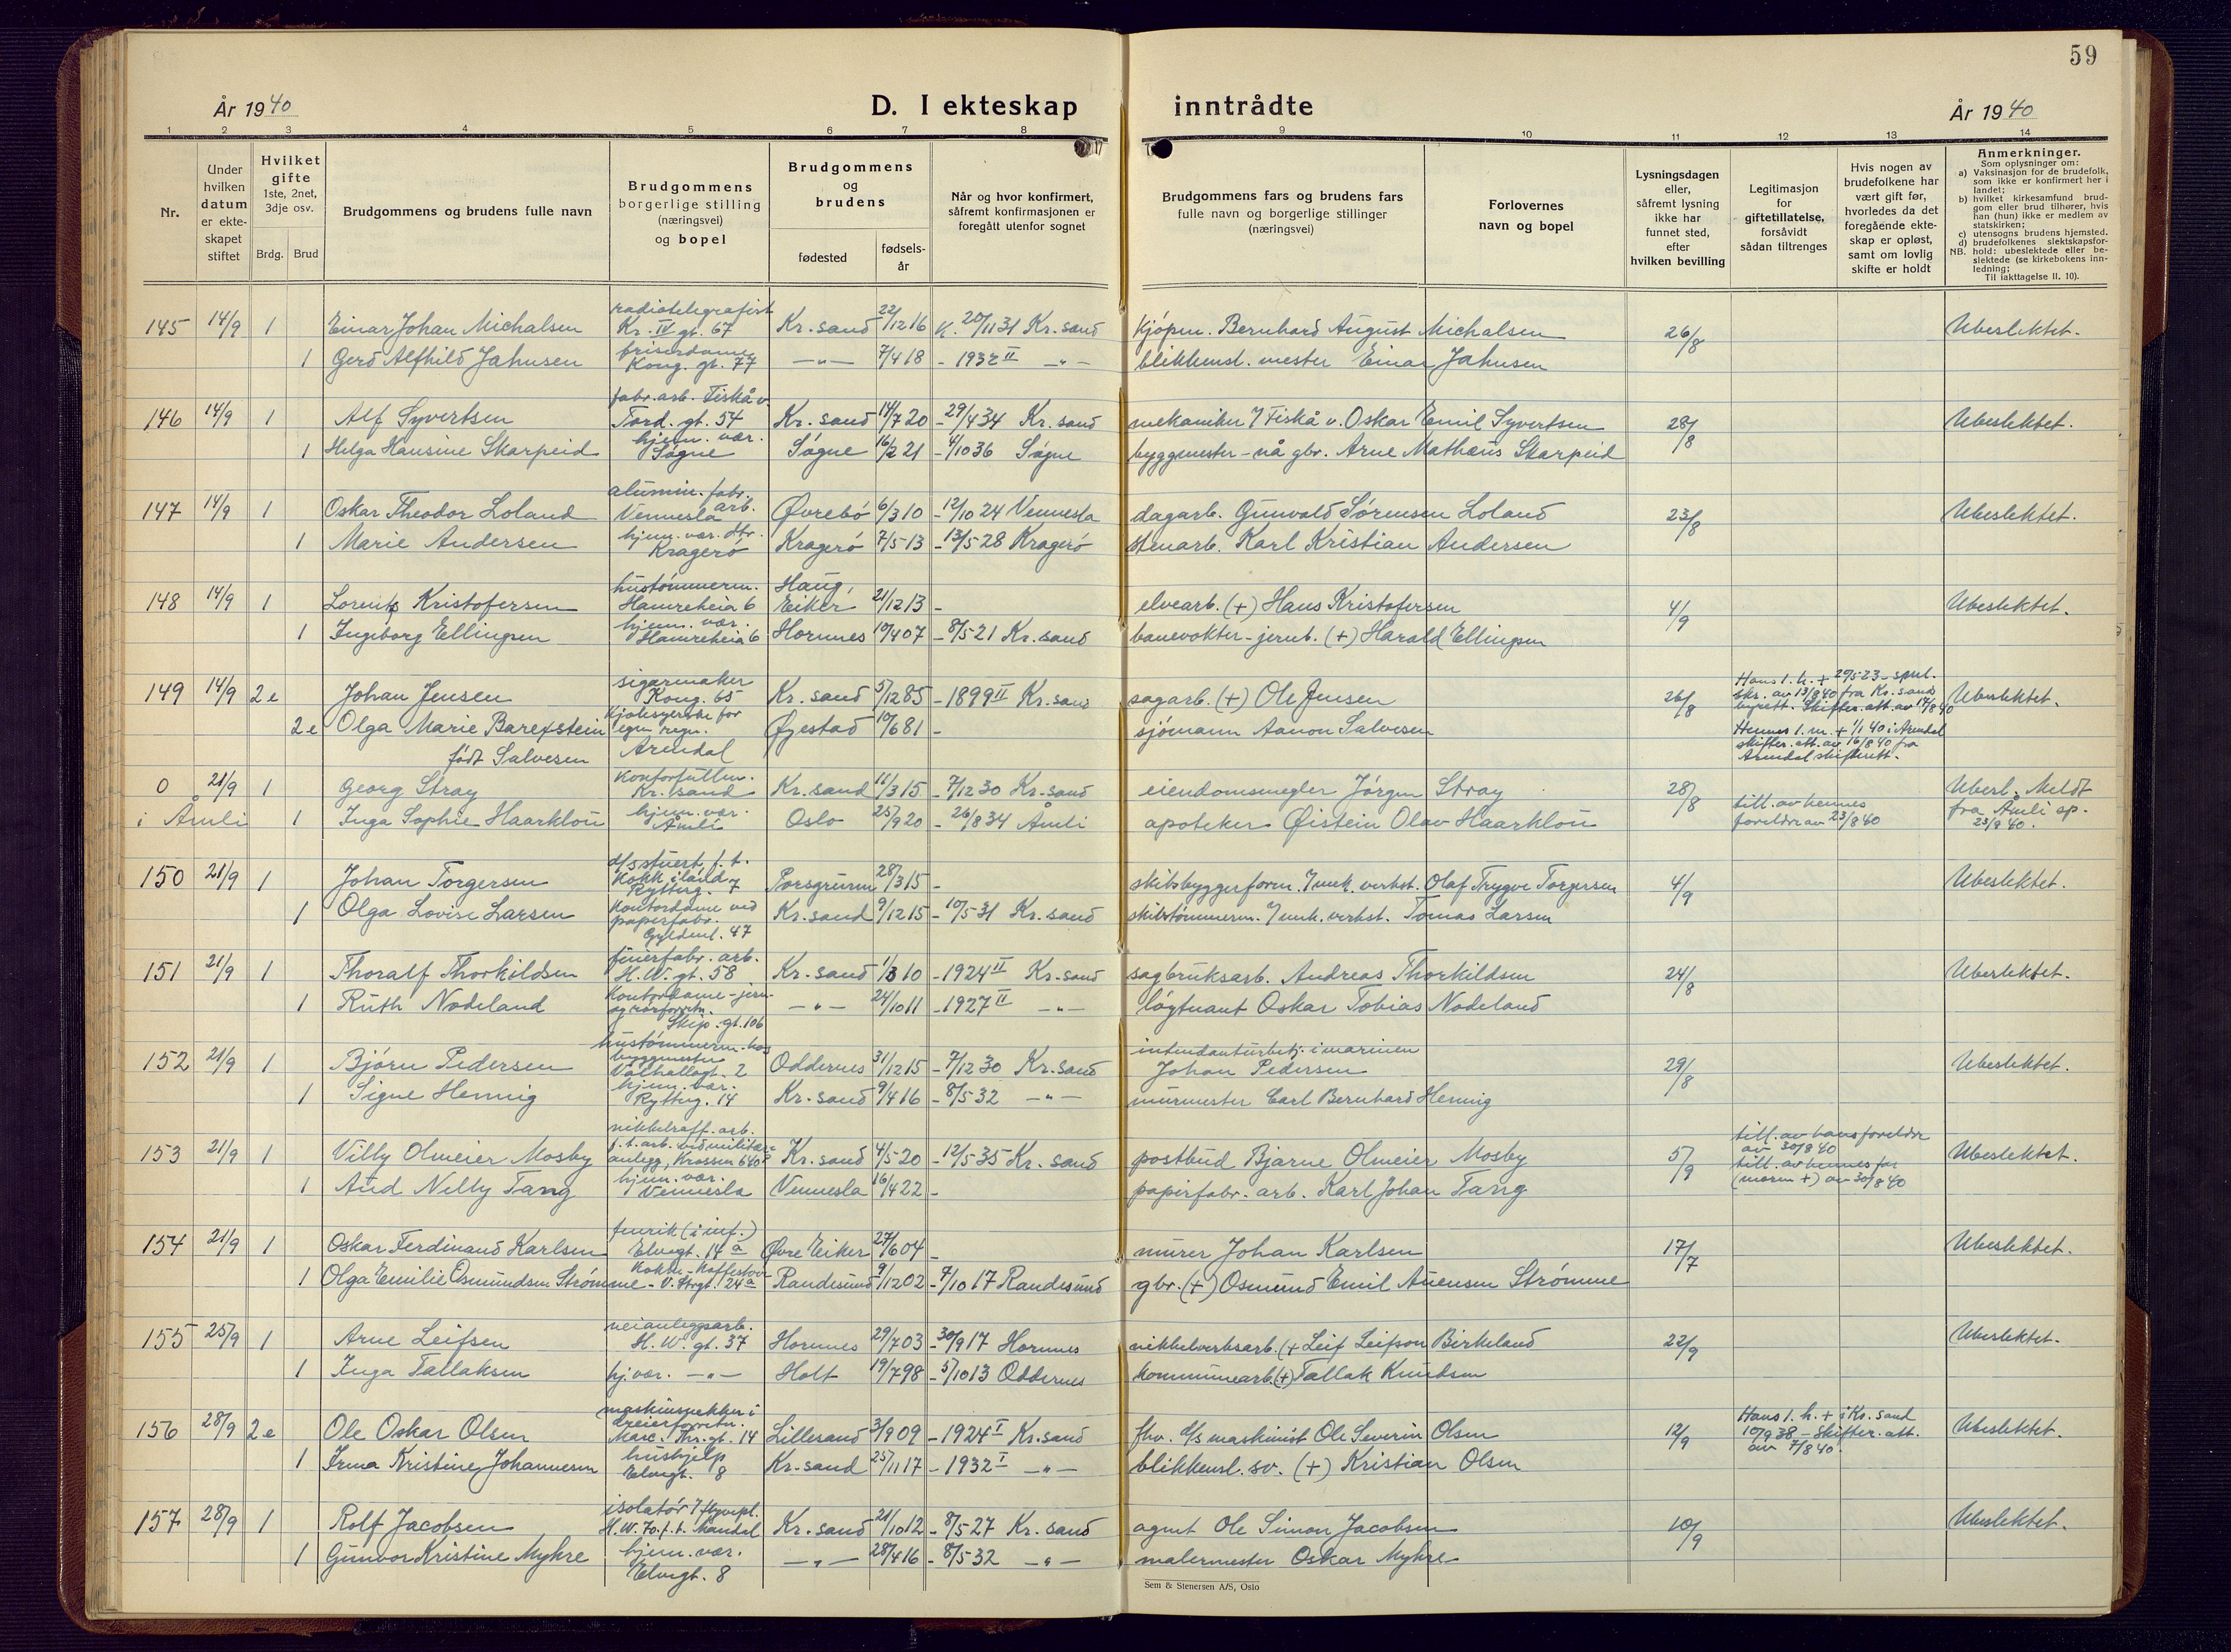 59
År 1940
D. I ekteskap inntrådte
År 1940
1 2 3 4 5 6 7 8 9 10 11 12 13 14
Nr.
Under hvilken datum er ekteskapet stiftet
Hvilket gifte 1ste, 2net, 3dje osv.
Brdg. Brud
Brudgommens og brudens fulle navn
Brudgommens borgerlige stilling (næringsvei) og bopel
Brudgommens og brudens
fødested
fødsels-år
Når og hvor konfirmert, såfremt konfirmasjonen er foregått utenfor sognet
Brudgommens fars og brudens fars fulle navn og borgerlige stillinger (næringsvei)
Forlovernes navn og bopel
Lysningsdagen eller, såfremt lysning ikke har funnet sted, efter hvilken bevilling
Legitimasjon for giftetillatelse, forsåvidt sådan tiltrenges
Hvis nogen av brudefolkene har vært gift før, hvorledes da det foregående ekteskap er opløst, samt om lovlig skifte er holdt
Anmerkninger.
Som oplysninger om:
a) Vaksinasjon for de brudefolk, som ikke er konfirmert her i landet;
b) hvilket kirkesamfund brudgom eller brud tilhører, hvis han (hun) ikke er medlem av statskirken;
c) utensogns brudens hjemsted.
d) brudefolkenes slektskapsforhold: ubeslektede eller beslektede (se kirkebokens innledning;
NB. Til iakttagelse II, 10).
145 14/9 1 Einar Johan Michalsen radiotelegrafist Kr. IV gt. 67 Kr.sand 22/12 16 K. 20/11 31 Kr.sand kjøpm. Bernhard August Michalsen 26/8 Ubeslektet.
1 Gerd Alfhild Jahnsen friserdame Kong. gt. 77 -"- 7/4 18 - 1932 II -"- blikkensl. mester Einar Jahnsen
146 14/9 1 Alf Syvertsen fabr.arb. Fiskå v. Tord. gt. 54 Kr.sand 14/7 20 - 29/4 34 Kr.sand mekaniker / Fiskå v. Oskar Emil Syvertsen 28/8 Ubeslektet.
1 Helga Hansine Skarpeid hjem. vær. Søgne Søgne 16/2 21 - 4/10 36 Søgne byggmester - nå gbr. Arne Mathæus Skarpeid
147 14/9 1 Oskar Theodor Loland alumin. fabr. arb. Vennesla Øvrebø 6/3 10 - 12/10 24 Vennesla dagarb. Gunvald Sørensen Loland 23/8 Ubeslektet.
1 Marie Andersen hjem. vær. dtr. Kragerø Kragerø 7/5 13 - 13/5 28 Kragerø stenarb. Karl Kristian Andersen
148 14/9 1 Lorentz Kristofersen hustømmerm. Hamreheia 6 Haug, Eiker 21/12 13 - elvearb. (+) Hans Kristofersen 4/9 Ubeslektet.
1 Ingeborg Ellingsen hjem. vær. Hamreheia 6 Hornnes 10/4 07 - 8/5 21 Kr.sand banevokter - jernb. (+) Harald Ellingsen
149 14/9 2e Johan Jensen sigarmaker Kong. 65 Kr.sand 5/12 85 - 1899 II Kr.sand sagarb. (+) Ole Jensen 26/8 Hans 1. h. + 29/5 23 - av 13/8 40 fra Kr.sands byrett. Skifter. att. av 17/8 40 Ubeslektet.
2e Olga Marie Barexstein født Salvesen kjolesyerske for egen regn. Arendal Øyestad 10/6 81 - sjømann Aanon Salvesen Hennes 1. m. + 1/1 40 i Arendal skifter. att. av 16/8 40 fra Arendal skifterett.
0 21/9 1 Georg Stray kontorfullm. Kr.sand Kr.sand 11/3 15 - 7/12 30 Kr.sand eiendomsmegler Jørgen Stray 28/8 Ubesl. Meldt
i Åmli 1 Inga Sophie Haarklou hjem. vær. Åmli Oslo 25/9 20 - 26/8 34 Åmli apoteker Øistein Olav Haarklou till. av hennes foreldre av 23/8 40 fra Åmli sp. 23/9 40.
150 21/9 1 Johan Torgersen d/s stuert, f. t. kokk iland Rytterg. 7 Porsgrunn 28/3 15 - skibsbyggerform. / mek. verkst. Olaf Trygve Torgersen 4/9 Ubeslektet.
1 Olga Lovise Larsen kontordame ved papirfabr. Gyldenl. 47 Kr.sand 9/12 15 - 10/5 31 Kr.sand skibstømmerm. / mek. verkst. Tomas Larsen
151 21/9 1 Thoralf Thorkildsen finerfabr. arb. H.W. gt. 58 Kr.sand 1/3 10 - 1924 II Kr.sand sagbruksarb. Andreas Thorkildsen 24/8 Ubeslektet.
1 Ruth Nodeland kontordame - jern og rørforretn. Skip. gt. 106 -"- 24/10 11 - 1927 II -"- løytnant Oskar Tobias Nodeland
152 21/9 1 Bjørn Pedersen hustømmerm. hos byggmester Valhallagt. 2 Oddernes 31/12 15 - 7/12 30 Kr.sand intendanturbetj. i marinen Johan Pedersen 29/8 Ubeslektet.
1 Signe Hennig hjem. vær. Rytterg. 14 Kr.sand 9/4 16 - 8/5 32 -"- murmester Carl Bernhard Hennig
153 21/9 1 Villy Olmeier Mosby nikkelraff. arb. f. t. arb. ved militær-anlegg, Krossen Kr.sand 4/5 20 - 12/5 35 Kr.sand postbud Bjarne Olmeier Mosby 5/9 till. av hans foreldre av 30/8 40 Ubeslektet.
1 Aud Nelly Tang hjem. vær. Vennesla Vennesla 16/4 22 - papirfabr. arb. Karl Johan Tang till. av hennes far (moren +) av 30/8 40
154 21/9 1 Oskar Ferdinand Karlsen fenrik (i inf.) Elvegt. 14 a Øvre Eiker 27/6 04 - murer Johan Karlsen 17/7 Ubeslektet.
1 Olga Emilie Osmundsen Strømme kokke - kaffestove - V. Strgt. 24 a Randesund 9/12 02 - 7/10 17 Randesund gbr. (+) Osmund Emil Auensen Strømme
155 25/9 1 Arne Leifsen veianleggsarb. H.W. gt. 37 Hornnes 29/7 03 - 30/9 17 Hornnes nikkelverksarb. (+ Leif Leifson Birkeland 22/9 Ubeslektet.
1 Inga Tallaksen hj. vær. -"- Holt 19/7 98 - 5/10 13 Oddernes kommunearb. (+) Tallak Knudsen
156 28/9 2e Ole Oskar Olsen maskinsnekker i dreierforretn. Marc. Thr. gt. 14 Lillesand 3/9 09 - 1924 I Kr.sand fhv. d/s maskinist Ole Severin Olsen 12/9 Hans 1. h. + i Kr.sand 10/9 38 - Skifter. att. av 7/8 40. Ubeslektet.
1 Irma Kristine Johannesen hushjelp Elvegt. 8 Kr.sand 25/11 17 - 1932 I -"- blikkensl. sv. (+) Kristian Olsen
157 28/9 1 Rolf Jacobsen isolatør / H.W. 70. f. t. Mandal Kr.sand 21/10 12 - 8/5 27 Kr.sand agent Ole Simon Jacobsen 10/9 Ubeslektet.
1 Gunvor Kristine Myhre hjem. vær. Elvegt. 8 -"- 28/4 16 - 8/5 32 -"- malermester Oskar Myhre
Sem & Stenersen A/S, Oslo